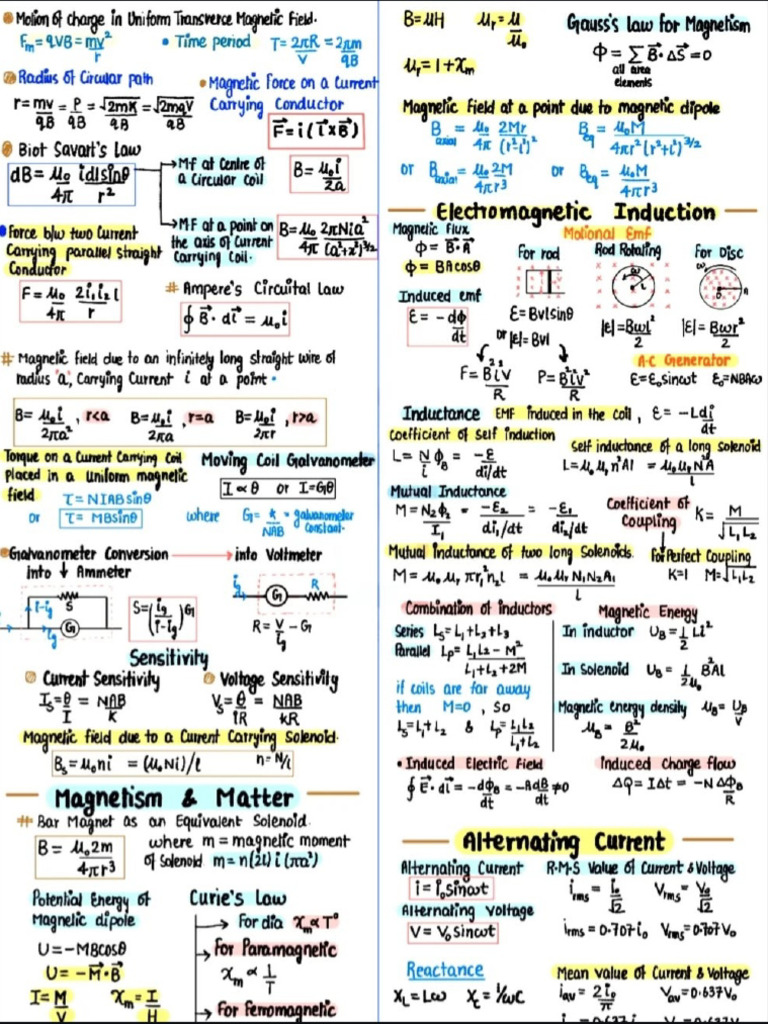 Motion of charge in Uniform Transverse Magnetic Field.
Fm = qVB = mv²/r • Time period T = 2πR/V = 2πm/qB
Radius of Circular path
r = mv/qB = P/qB = √2mK/qB = √2mqV/qB
• Magnetic Force on a Current
Carrying Conductor
F⃗ = i(l⃗×B⃗)
Biot Savart's Law
dB = μ₀/4π idlsinθ/r²
→ MF at Centre of
a Circular coil
B = μ₀i/2a
→ MF at a point on
the axis of Current
Carrying Coil.
B = μ₀/4π 2πNia²/(a²+x²)^3/2
• Force b/w two Current
Carrying parallel straight
Conductor
F = μ₀/4π 2i₁i₂l/r
# Ampere's Circuital Law
∮ B⃗ · dl⃗ = μ₀i
# Magnetic field due to an infinitely long straight wire of
radius 'a', Carrying Current i at a point •
B = μ₀i/2πa², r<a B = μ₀i/2πa, r=a B = μ₀i/2πr, r>a
Torque on a Current Carrying Coil
Placed in a uniform magnetic
field
τ = NIABsinθ
or τ = MBsinθ
Moving Coil Galvanometer
I ∝ θ or I = Gθ
where G = k/NAB = galvanometer
constant.
Galvanometer Conversion → into Voltmeter
into ↓ Ammeter
i-ig S ig G
S = (ig/i-ig)G
ig G R
R = V/ig - G
Sensitivity
Current Sensitivity
Is = θ/I = NAB/k
Voltage Sensitivity
Vs = θ/IR = NAB/kR
Magnetic field due to a Current Carrying Solenoid.
Bs = μ₀ni = (μ₀Ni)/l n = N/l
Magnetism & Matter
# Bar Magnet as an Equivalent Solenoid.
B = μ₀2m/4πr³
where m = magnetic moment
of Solenoid m = n(2l)i(πa²)
Potential Energy of
Magnetic dipole
U = -MBcosθ
U = -M⃗·B⃗
I = M/V χm = I/H
Curie's Law
→ For dia χm ∝ T⁰
→ For Paramagnetic
χm ∝ 1/T
→ For Ferromagnetic
B = μH μr = μ/μ₀
μr = 1+χm
Gauss's law for Magnetism
Φ = Σ B⃗·ΔS⃗ = 0
all area
elements
Magnetic field at a point due to magnetic dipole
Baxial = μ₀/4π 2Mr/(r²-l²)² Beq = μ₀M/4πr²(r²+l²)^3/2
or Baxial = μ₀2M/4πr³ or Beq = μ₀M/4πr³
Electromagnetic Induction
Magnetic Flux
Φ = B⃗·A⃗
Φ = BAcosθ
Induced emf
Ɛ = -dΦ/dt
Motional Emf
For rod Rod Rotating For Disc
Ɛ = Bvlsinθ
or |Ɛ| = Bvl
|Ɛ| = Bωl²/2 |Ɛ| = Bωr²/2
F = B²l²V/R P = B²l²V²/R
A·C Generator
Ɛ = Ɛ₀sinωt Ɛ₀ = NBAω
Inductance EMF induced in the coil, Ɛ = -Ldi/dt
Coefficient of Self induction
L = N/i ΦB = -Ɛ/di/dt
Self inductance of a long Solenoid
L = μ₀μrn²Al = μ₀μrN²A/l
Mutual Inductance
M = N₂Φ₂/I₁ = -Ɛ₂/di₁/dt = -Ɛ₁/di₂/dt
Coefficient of
Coupling K = M/√L₁L₂
Mutual inductance of two long Solenoids.
M = μ₀μrπr₁²n₂l = μ₀μrN₁N₂A₁/l
For Perfect Coupling
K=1 M=√L₁L₂
Combination of inductors
Series Ls = L₁+L₂+L₃
Parallel LP = L₁L₂-M²/L₁+L₂+2M
if coils are far away
then M=0, so
Ls = L₁+L₂ & LP = L₁L₂/L₁+L₂
Magnetic Energy
In inductor UB = 1/2 Li²
In Solenoid UB = 1/2μ₀ B²Al
Magnetic energy density uB = UB/V
uB = B²/2μ₀
• Induced Electric Field
∮ E⃗·dl⃗ = -dΦB/dt = -AdB/dt ≠ 0
Induced Charge flow
ΔQ = IΔt = -N ΔΦB/R
Alternating Current
Alternating Current
i = i₀sinωt
Alternating Voltage
V = V₀sinωt
R·M·S Value of Current & Voltage
irms = i₀/√2 Vrms = V₀/√2
irms = 0.707i₀ Vrms = 0.707V₀
Reactance
XL = Lω Xc = 1/ωC
Mean value of Current & Voltage
iav = 2i₀/π Vav = 0.637V₀